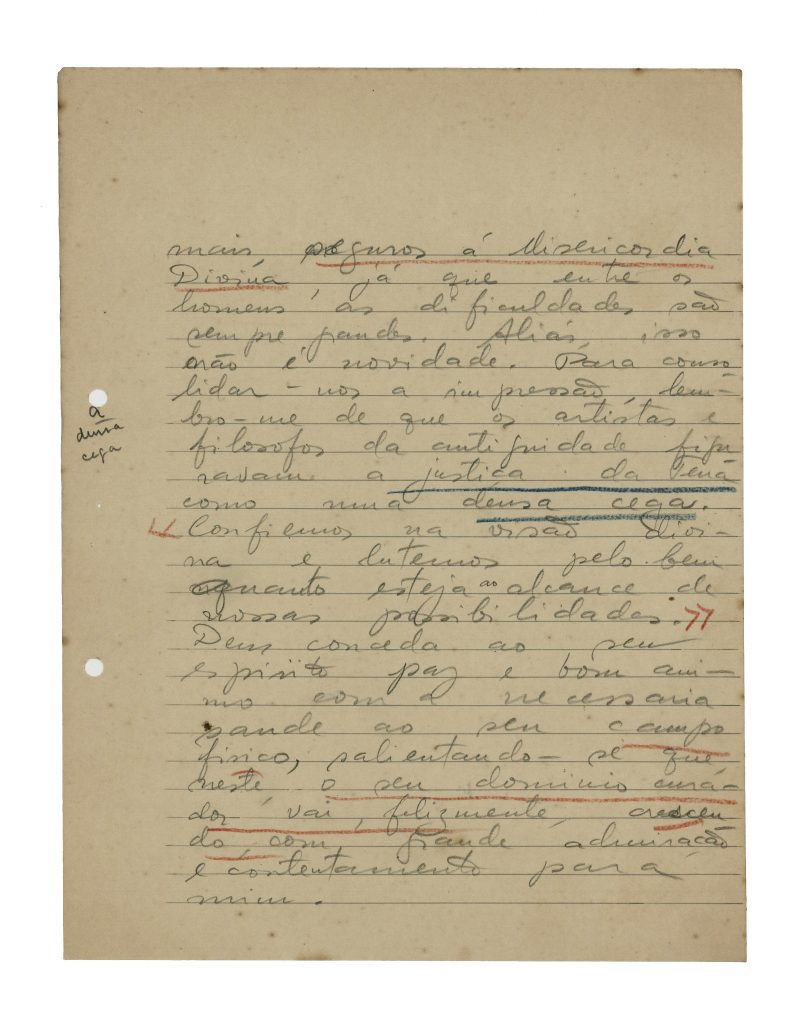 mais seguros á Misericordia
Divina já que entre os
homens as dificuldades são
sempre grandes. Aliás, isso
não é novidade. Para conso
lidar-nos a impressão, lem-
bro-me de que os artistas e
filosofos da antiguidade figu
ravam a justiça da Terra
como uma deusa cega.
a
deusa
cega
<< Confiemos na visão Divi-
na e lutemos pelo bem
quanto esteja ao alcance de
nossas possibilidades. >>
Deus conceda ao seu
espirito paz e bom ani-
mo com a necessaria
saude ao seu campo
fisico, salientando-se que
neste o seu dominio curá-
dor vai, felizmente, crescen
do com grande admiração
e contentamento para
mim.